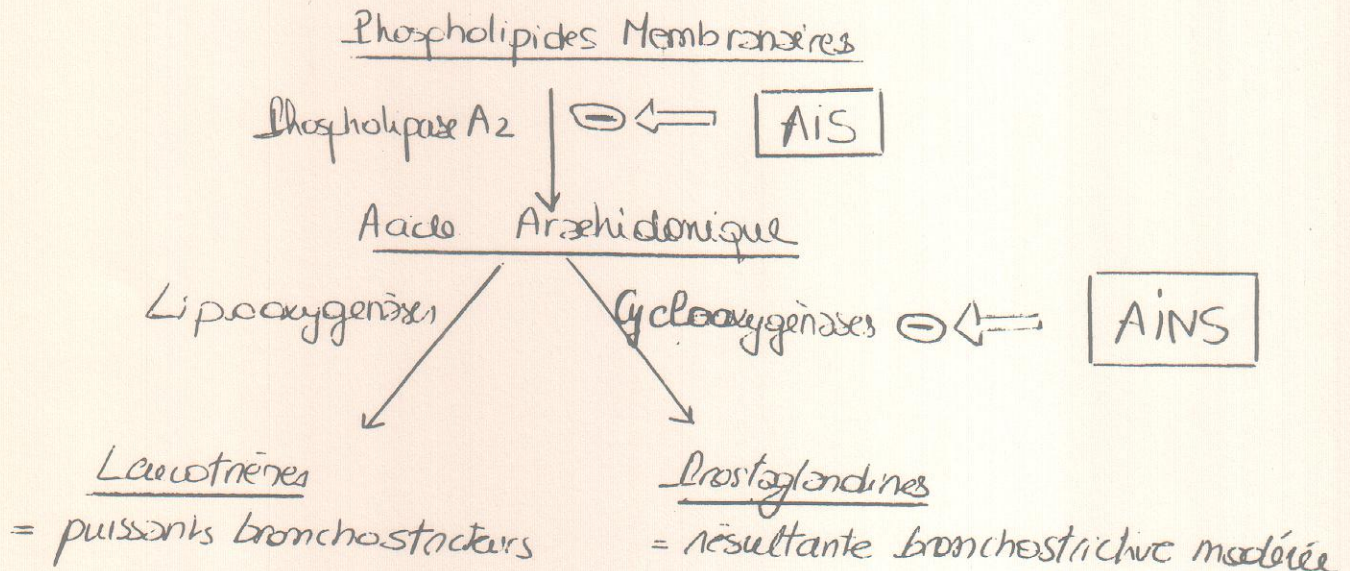 Phospholipides Membranaires
Phospholipase A2
-
AiS
Acide Arachidonique
Lipooxygenases
Cyclooxygénases
-
AiNS
Leucotriènes
Prostaglandines
= puissants bronchostricteurs
= résultante bronchostrictive modérée